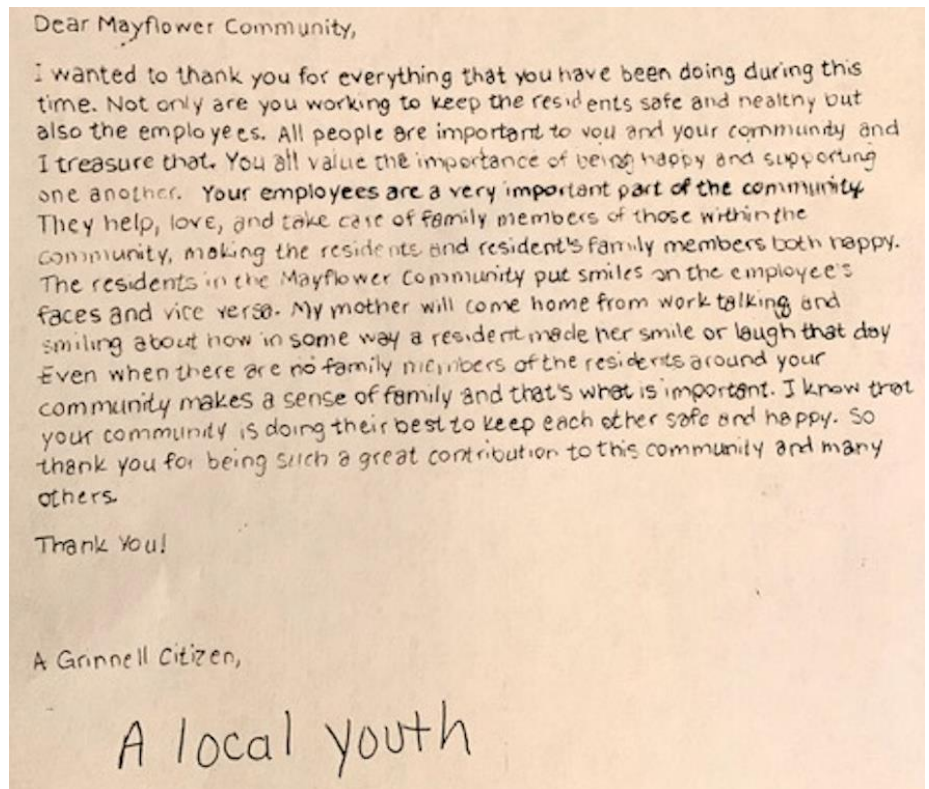 Dear Mayflower Community,
I wanted to thank you for everything that you have been doing during this
time. Not only are you working to keep the residents safe and healthy but
also the employees. All people are important to you and your community and
I treasure that. You all value the importance of being happy and supporting
one another. Your employees are a very important part of the community
They help, love, and take care of family members of those within the
community, making the residents and resident's family members both happy.
The residents in the Mayflower Community put smiles on the employee's
faces and vice versa. My mother will come home from work talking and
smiling about how in some way a resident made her smile or laugh that day
Even when there are no family members of the residents around your
community makes a sense of family and that's what is important. I know that
your community is doing their best to keep each other safe and happy. So
thank you for being such a great contribution to this community and many
others.
Thank You!
A Grinnell Citizen,
A local youth